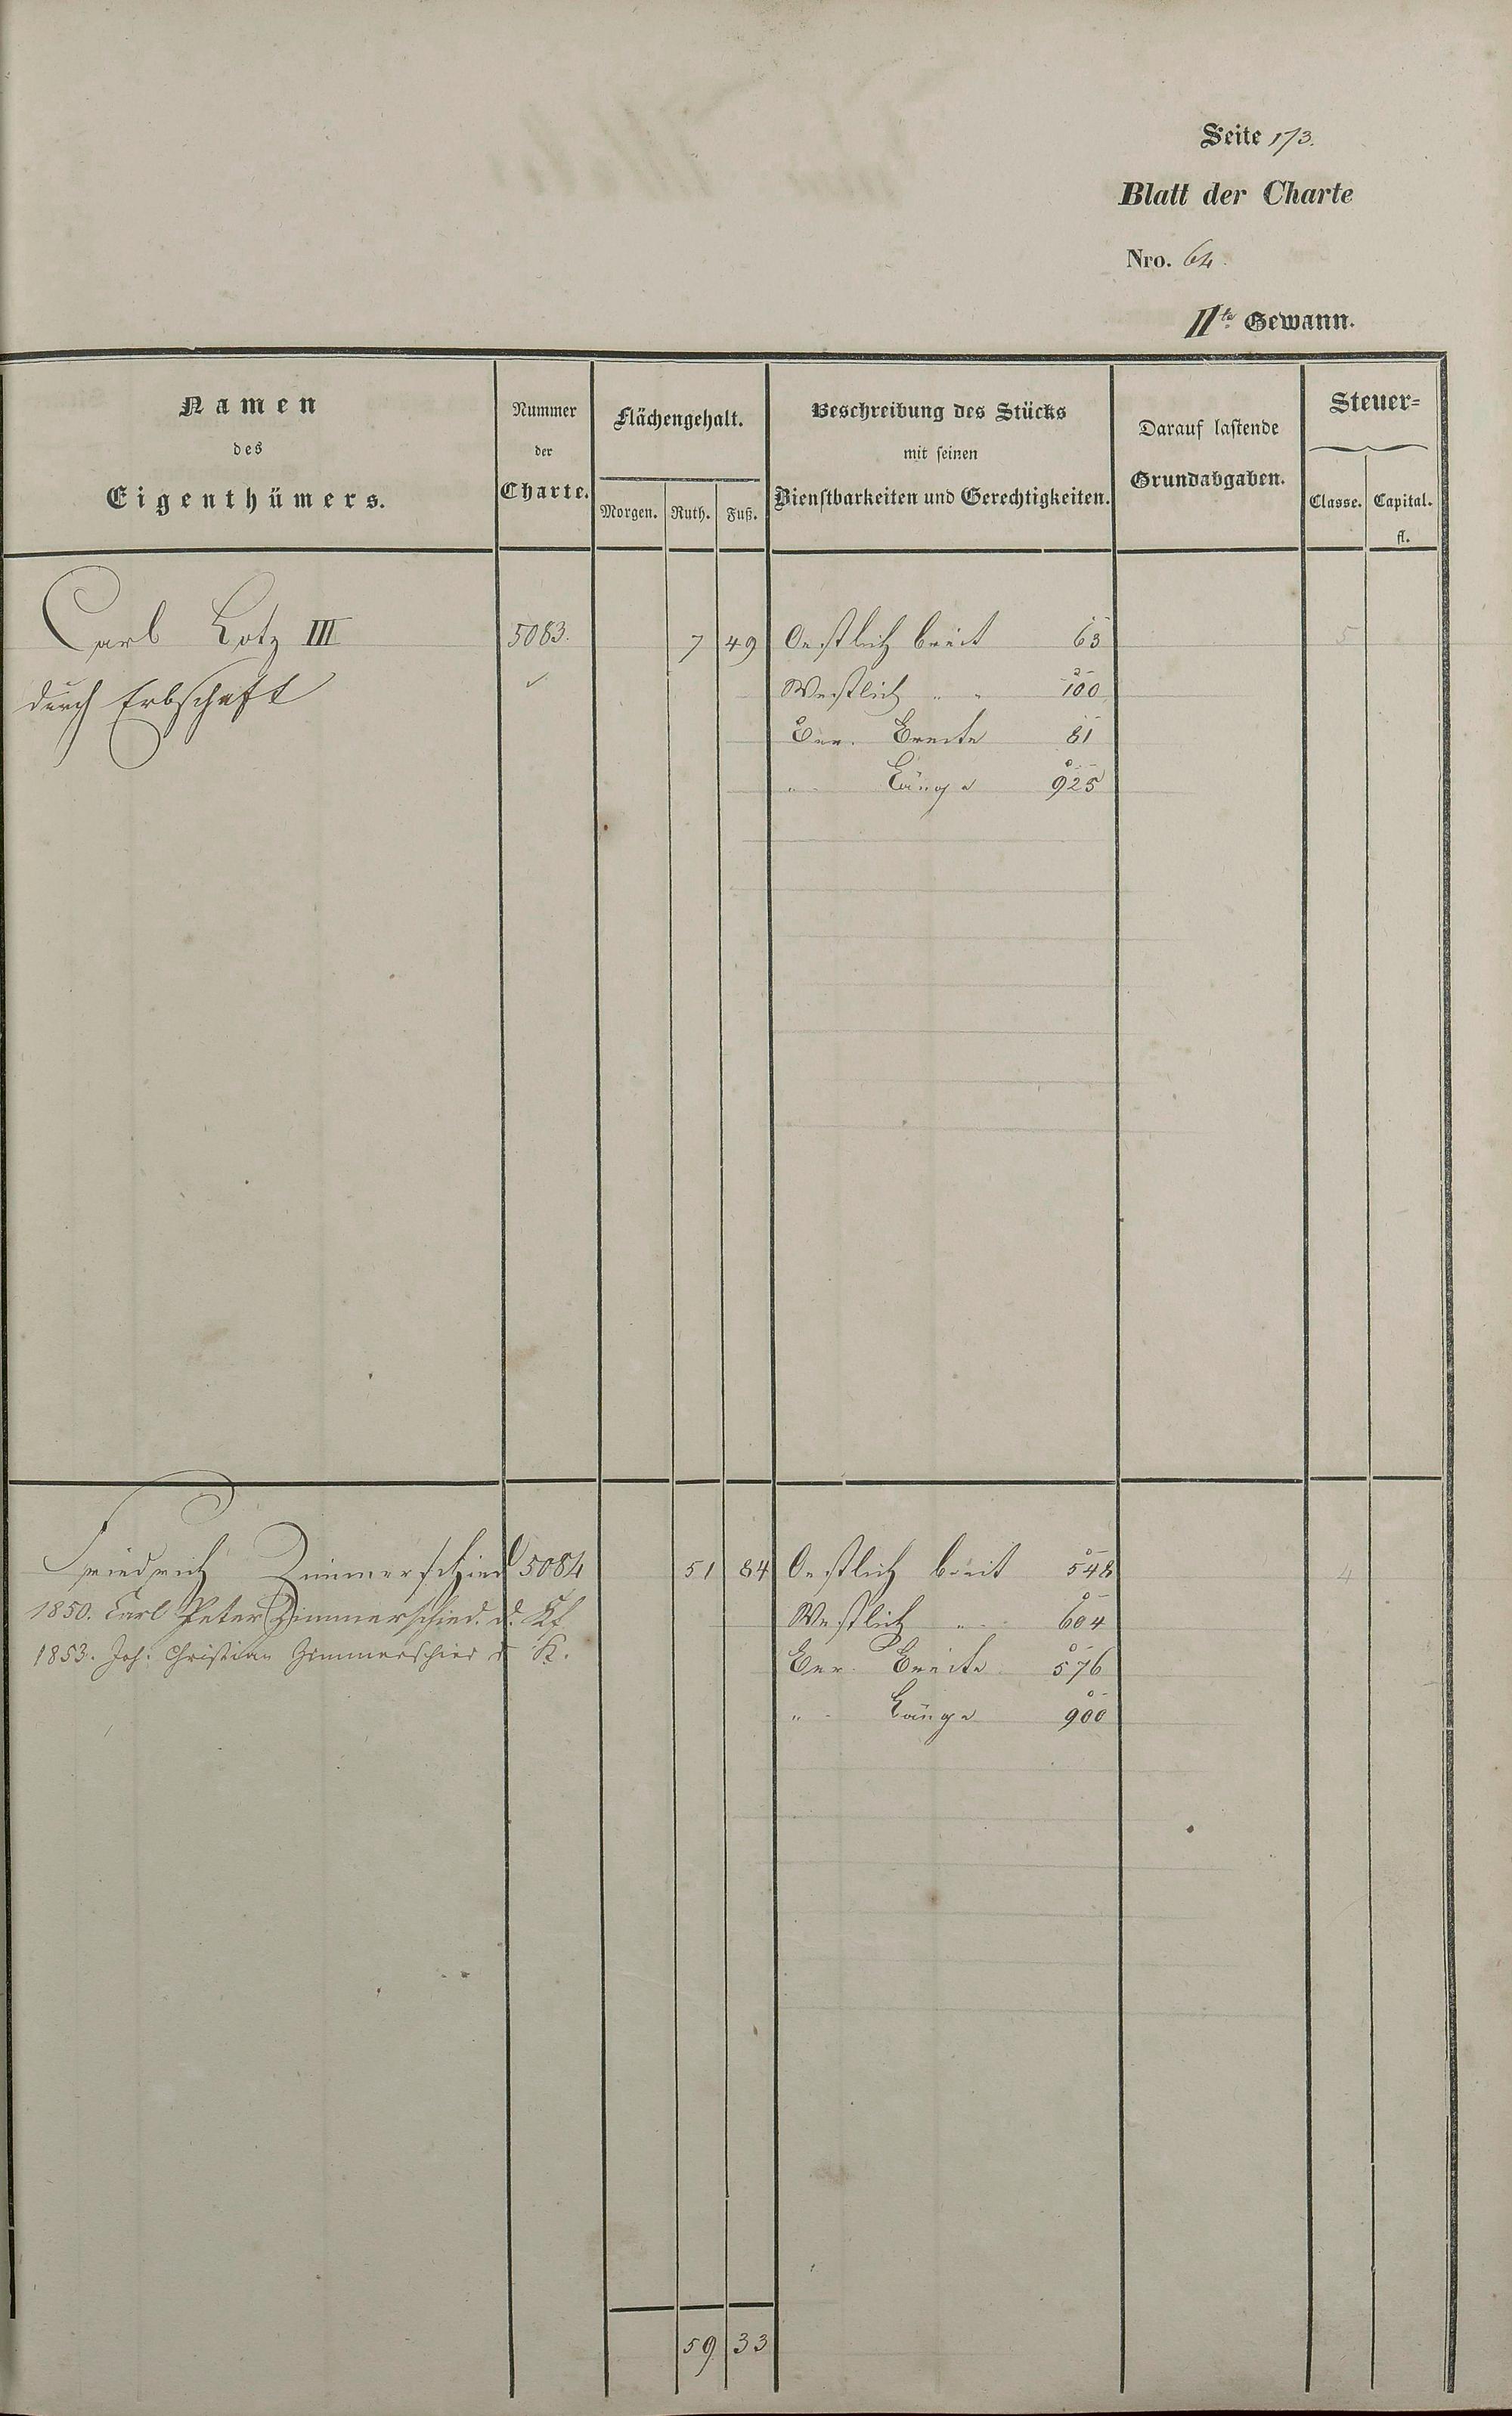 Seite 173.
Blatt der Charte
Nro. 64.
IIte Gewann.
Namen
des
Eigenthümers.
Nummer
der
Charte.
Flächengehalt.
Morgen. Ruth. Fuß.
Beschreibung des Stücks
mit seinen
Dienstbarkeiten und Gerechtigkeiten.
Darauf lastende
Grundabgaben.
Steuer=
Classe. Capital.
fl.
Carl Lotz III 5083. 7 49 Oestlich breit 63 5
durch Erbschaft Westlich " " 100
Ver. Breite 81
" Länge 925
Friedrich Zimmerschied 5084 51 84 Oestlich breit 548 4
1850. Carl Peter Zimmerschied. d. Kf. Westlich " 604
1853. Joh. Christian Zimmerschied d K. Ver. Breite 576
" Länge 900
59 33